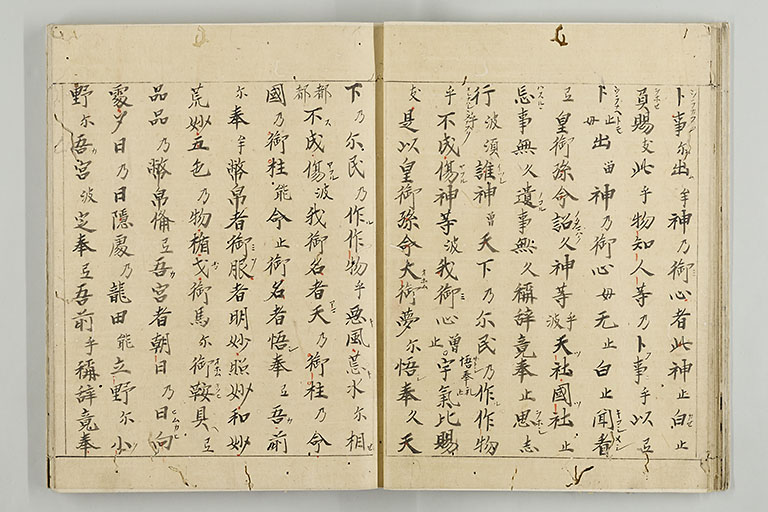 卜事尓出牟神乃御心者此神止白止
負賜支此乎物知人等乃卜事乎以弖
卜止母出留神乃御心母无止白止聞看
弖皇御孫命詔久神等乎波天社國社止
忘事無久遺事無久稱辞竟奉止思志
行波須誰神曽天下乃公民乃作作物
乎不成傷神等波我御心曽止悟奉礼止宇氣比賜
支是以皇御孫命大御夢尓悟奉久天
下乃公民乃作作物乎悪風荒水尓相
都都不成傷波我御名者天乃御柱乃命
國乃御柱能命止御名者悟奉弖吾前
尓奉牟幣帛者御服者明妙照妙和妙
荒妙五色乃物楯戈御馬尓御鞍具弖
品品乃幣帛備弖吾宮者朝日乃日向
處夕日乃日隠處乃龍田能立野尓小
野尓吾宮波定奉弖吾前乎稱辞竟奉